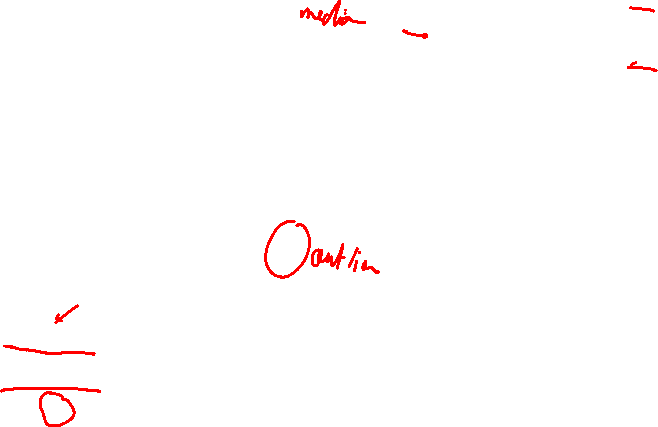 median
outlier